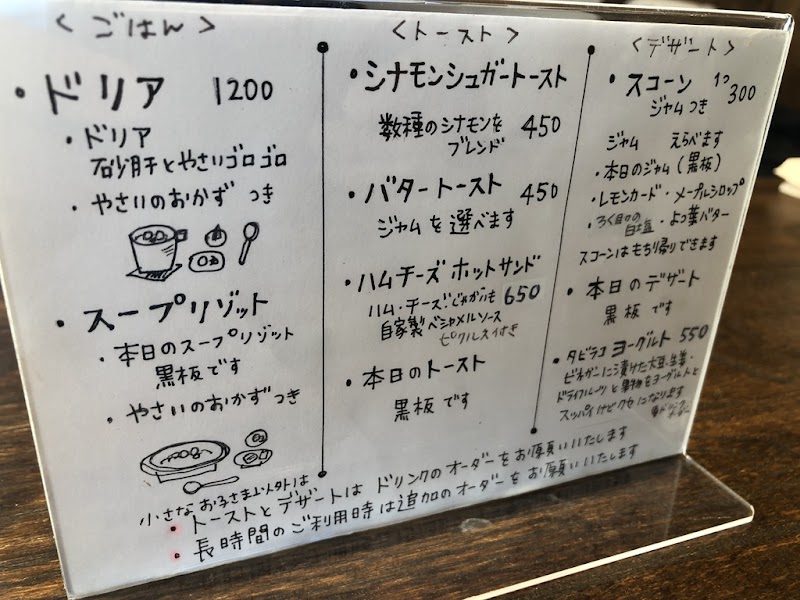 <ごはん>
・ドリア 1200
・ドリア
砂肝とやさいゴロゴロ
・やさいのおかず つき
・スープリゾット
・本日のスープリゾット
黒板です
・やさいのおかずつき
<トースト>
・シナモンシュガートースト
数種のシナモンを 450
ブレンド
・バタートースト 450
ジャムを選べます
・ハムチーズホットサンド
ハム・チーズ・じゃがいも 650
自家製ベシャメルソース
ピクルス付き
・本日のトースト
黒板です
<デザート>
・スコーン 1つ 300
ジャムつき
ジャム えらべます
・本日のジャム(黒板)
・レモンカード・メープルシロップ
・よつ葉バター
スコーンはもち帰りできます
・本日のデザート
黒板です
・タビラコ ヨーグルト 550
・ビネガーに漬けた大豆・生姜・
ドライフルーツと果物をヨーグルトと
スッパイけどクセになります
小さなお子さま以外は
・トーストとデザートは ドリンクのオーダーをお願いいたします
・長時間のご利用時は追加のオーダーをお願いいたします